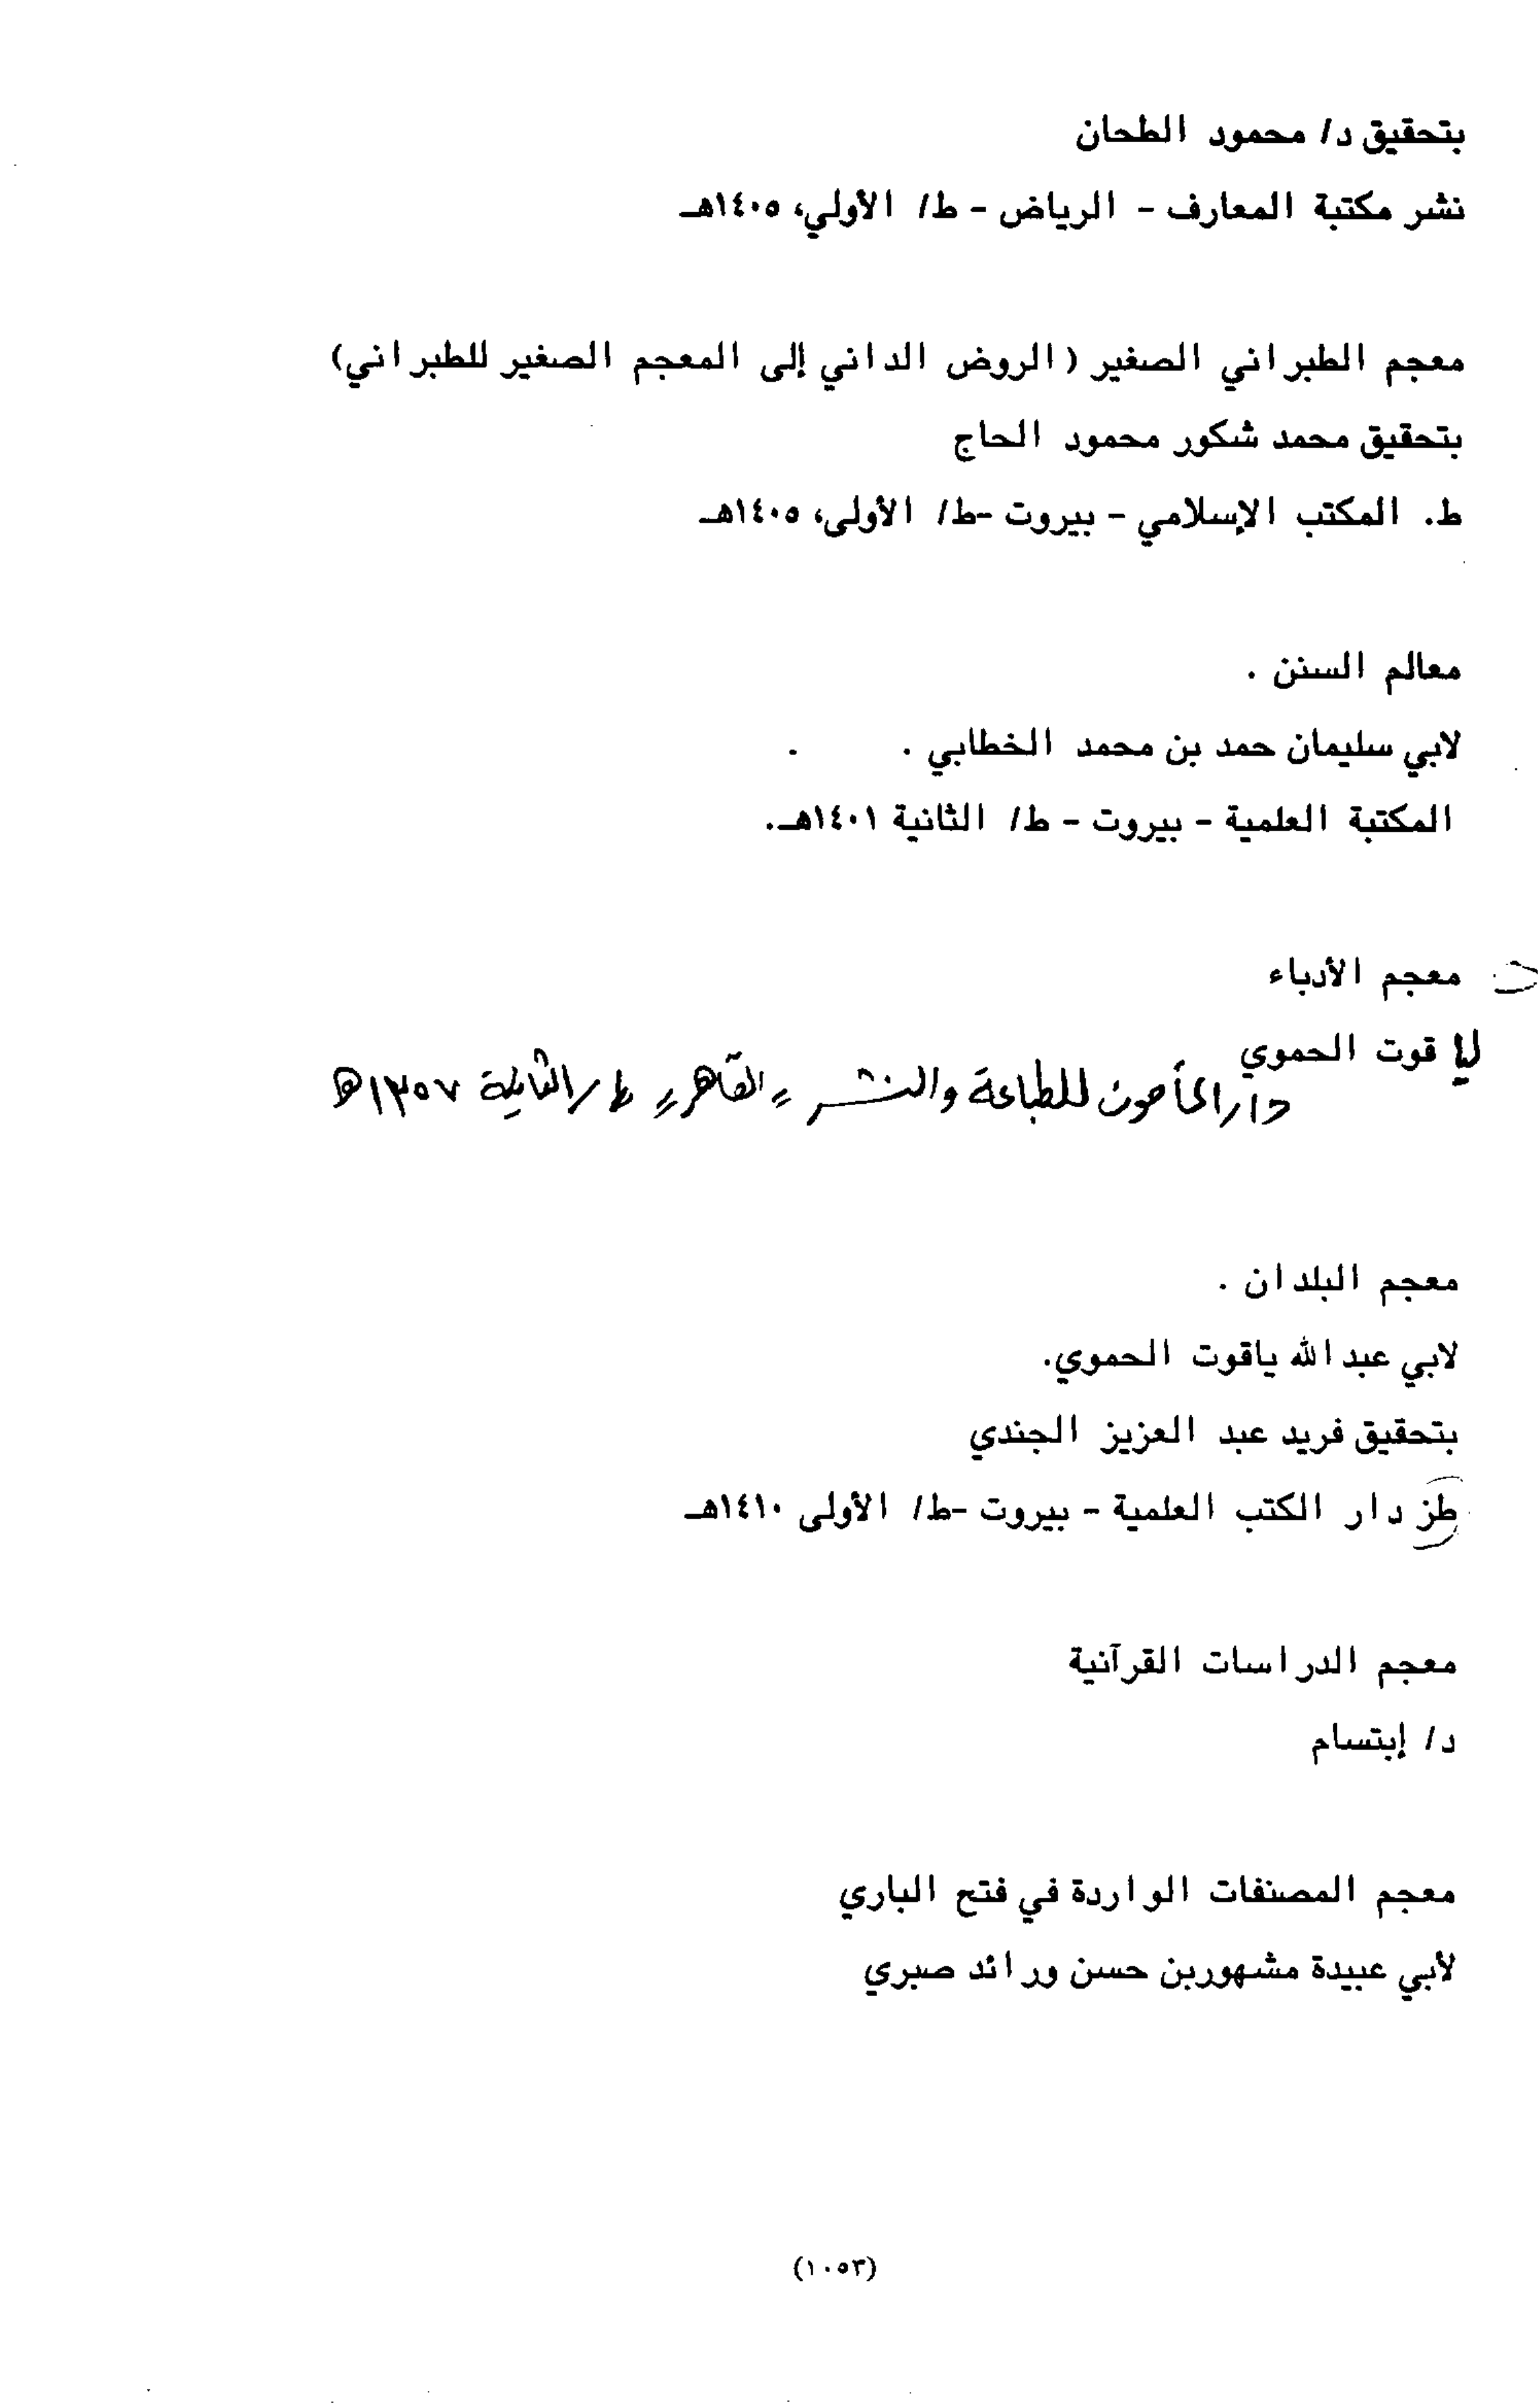 بتحقيق د/ محمود الطحان
نشر مكتبة المعارف - الرياض - ط/ الأولي، ١٤٠٥هـ
معجم الطبراني الصغير (الروض الداني إلى المعجم الصغير للطبراني)
بتحقيق محمد شكور محمود الحاج
ط. المكتب الإسلامي - بيروت -ط/ الأولى، ١٤٠٥هـ
معالم السنن .
لابي سليمان حمد بن محمد الخطابي .
المكتبة العلمية - بيروت - ط/ الثانية ١٤٠١هـ.
معجم الأدباء
ليا قوت الحموي
دار المأمون للطباعة والنشر - القاهرة - ط/ الثانية ١٣٥٧هـ
معجم البلدان .
لابي عبدالله ياقوت الحموي.
بتحقيق فريد عبد العزيز الجندي
طز دار الكتب العلمية - بيروت -ط/ الأولى ١٤١٠هـ
معجم الدراسات القرآنية
د/ إبتسام
معجم المصنفات الواردة في فتح الباري
لأبي عبيدة مشهوربن حسن ورائد صبري
(١٠٥٣)